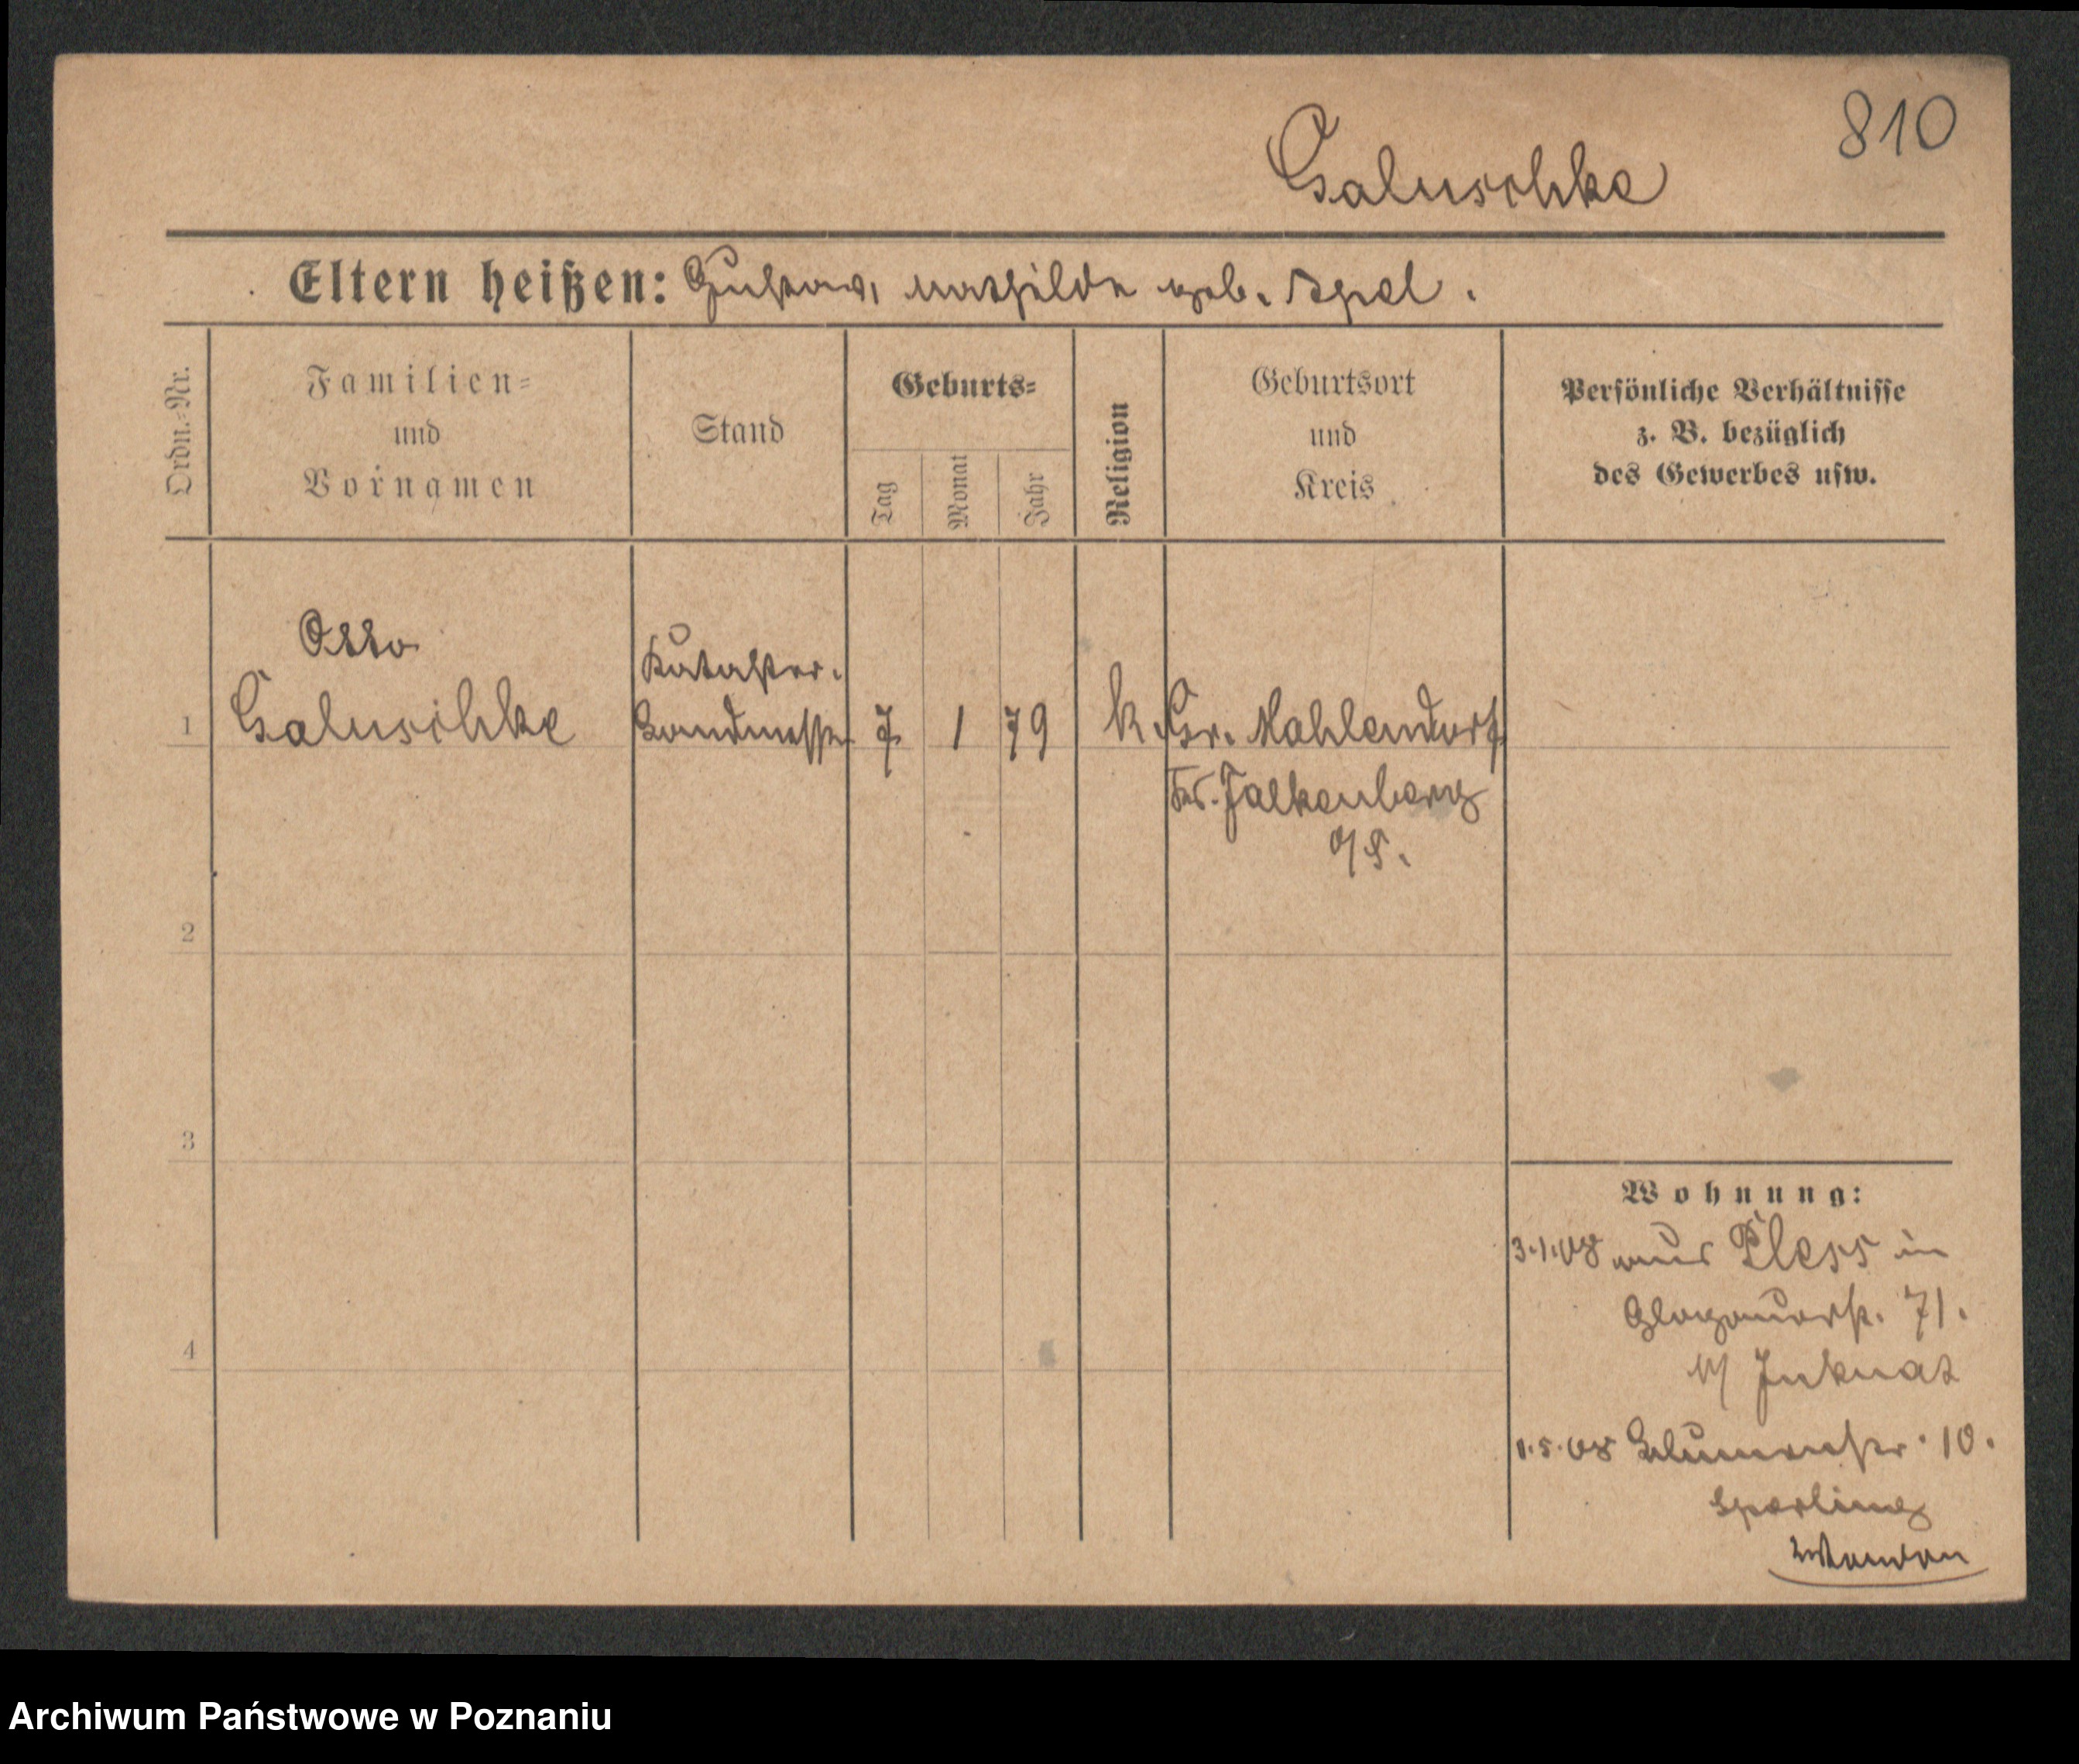 810
Galuschke
Eltern heißen: Gustav, Mathilde geb. Apel.
Ordn.=Nr.
Familien=
und
Vornamen
Stand
Geburts=
Tag
Monat
Jahr
Religion
Geburtsort
und
Kreis
Persönliche Verhältnisse
z. B. bezüglich
des Gewerbes usw.
Otto
Kataster-
1 Galuschke Landmesser 7 1 79 k. Gr. Mahlendorf
Krs. Falkenberg
O/S.
2
3
4
Wohnung:
3.1.08 aus Pless in
Glogauerstr. 71.
b/
1.5.08 Blumenstr. 10.
Sperling
Archiwum Państwowe w Poznaniu